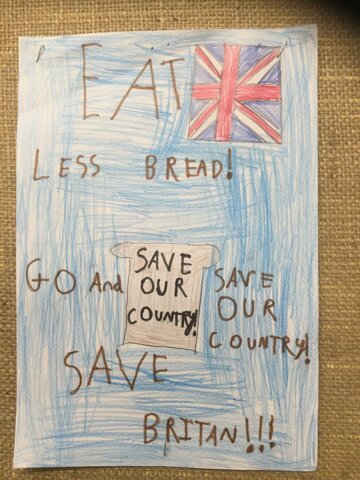 EAT
LESS BREAD!
GO And
SAVE
OUR
COUNTRY!
SAVE
OUR
COUNTRY!
SAVE
BRITAN!!!